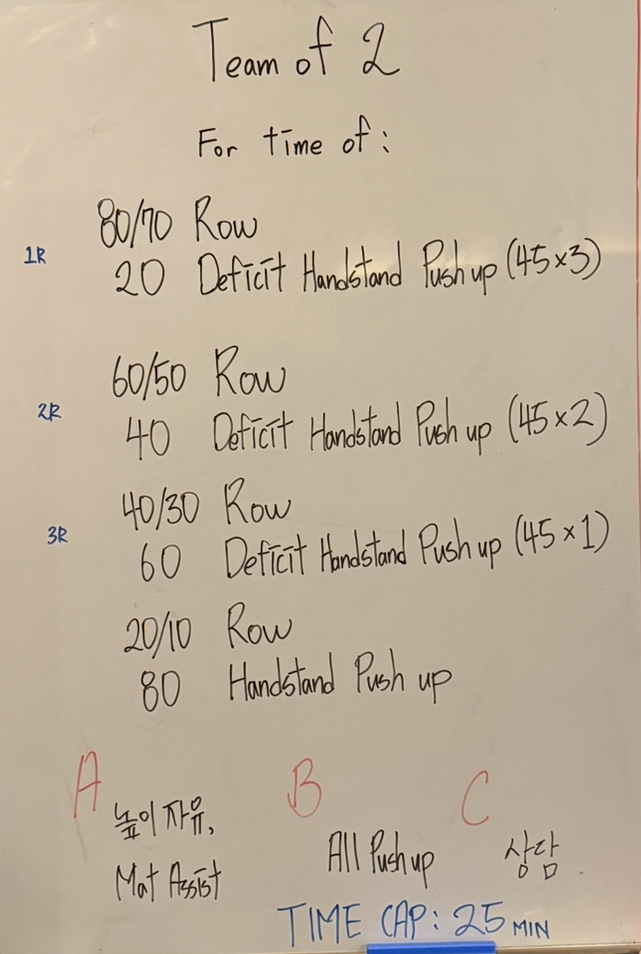 Team of 2
For time of:
80/70 Row
1R
20 Deficit Handstand Push up (45x3)
60/50 Row
2R
40 Deficit Handstand Push up (45x2)
40/30 Row
3R
60 Deficit Handstand Push up (45x1)
20/10 Row
80 Handstand Push up
A B C
높이 자유,
Mat Assist
All Push up
상담
TIME CAP: 25 MIN